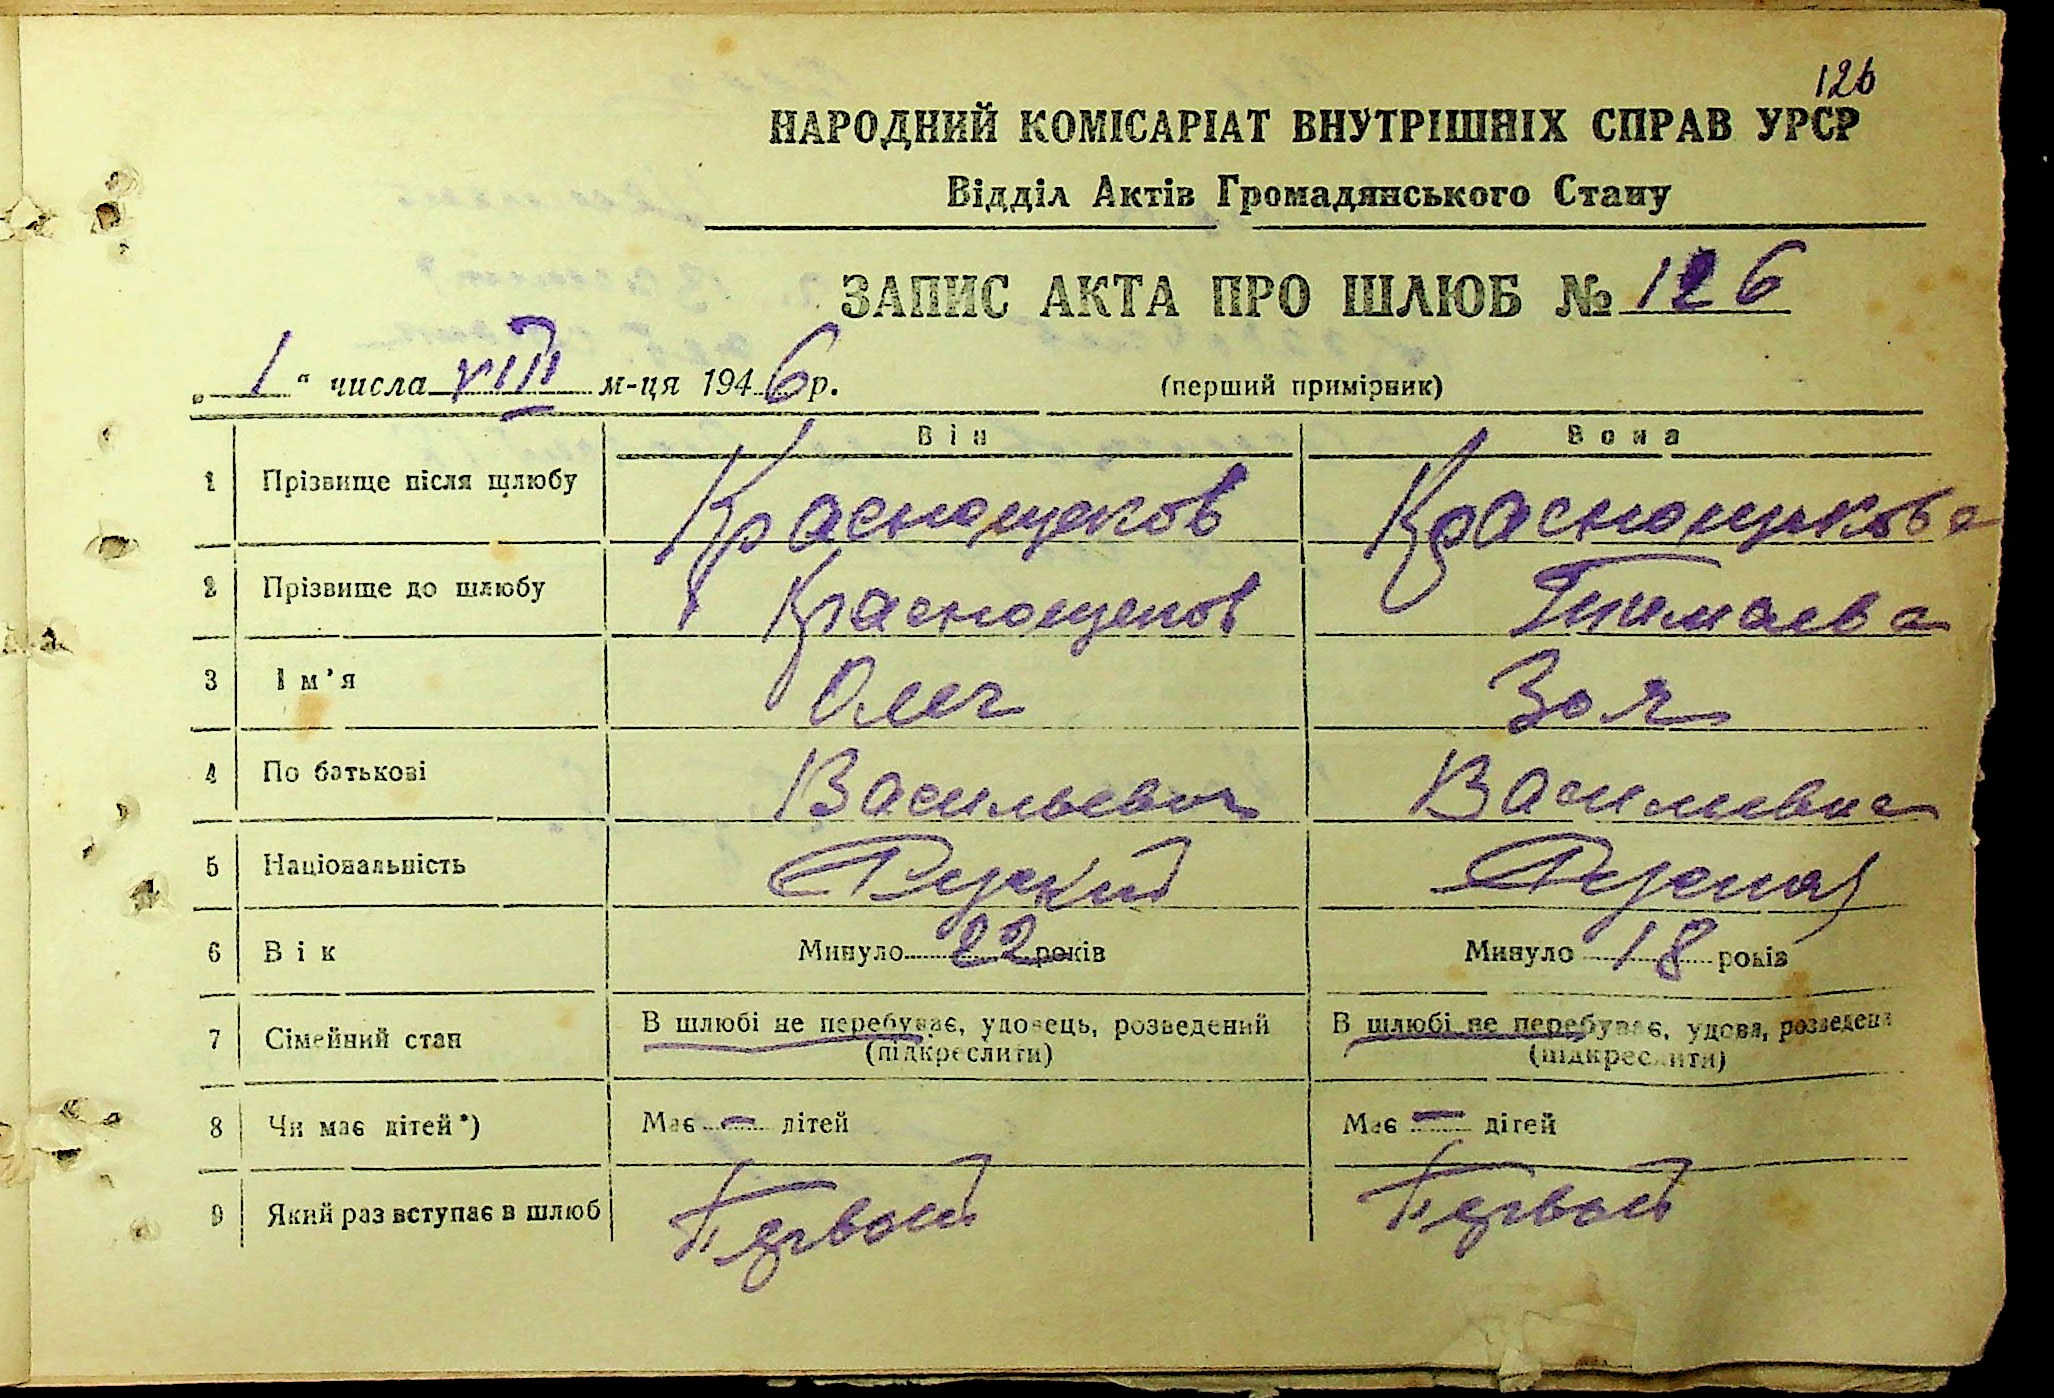 126
НАРОДНИЙ КОМІСАРІАТ ВНУТРІШНІХ СПРАВ УРСР
Відділ Актів Громадянського Стану
ЗАПИС АКТА ПРО ШЛЮБ № 126
„ 1 “ числа VIII м-ця 1946 р. (перший примірник)
Він Вона
1 Прізвище після шлюбу Краснощеков Краснощекова
2 Прізвище до шлюбу Краснощеков
3 Ім’я Олег Зоя
4 По батькові Васильевич Васильевна
5 Національність Руский Руская
6 Вік Минуло 22 років Минуло 18 років
7 Сімейний стан В шлюбі не перебуває, удовець, розведений В шлюбі не перебуває, удова, розведена
(підкреслити) (підкреслити)
8 Чи має дітей*) Має — дітей Має — дітей
9 Який раз вступає в шлюб Первый Первый